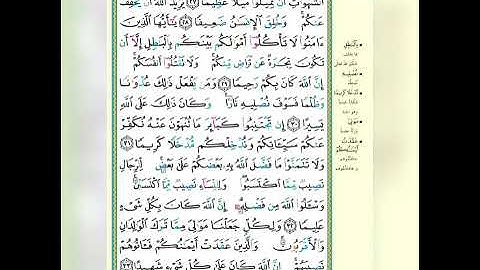 ٱلشَّهَوَٰتِ أَن تَمِيلُوا۟ مَيْلًا عَظِيمًا ٢٧ يُرِيدُ ٱللَّهُ أَن يُخَفِّفَ
عَنكُمْ وَخُلِقَ ٱلْإِنسَٰنُ ضَعِيفًا ٢٨ يَٰٓأَيُّهَا ٱلَّذِينَ
ءَامَنُوا۟ لَا تَأْكُلُوٓا۟ أَمْوَٰلَكُم بَيْنَكُم بِٱلْبَٰطِلِ إِلَّآ أَن
تَكُونَ تِجَٰرَةً عَن تَرَاضٍ مِّنكُمْ وَلَا تَقْتُلُوٓا۟ أَنفُسَكُمْ
إِنَّ ٱللَّهَ كَانَ بِكُمْ رَحِيمًا ٢٩ وَمَن يَفْعَلْ ذَٰلِكَ عُدْوَٰنًا
وَظُلْمًا فَسَوْفَ نُصْلِيهِ نَارًا وَكَانَ ذَٰلِكَ عَلَى ٱللَّهِ
يَسِيرًا ٣٠ إِن تَجْتَنِبُوا۟ كَبَآئِرَ مَا تُنْهَوْنَ عَنْهُ نُكَفِّرْ
عَنكُمْ سَيِّـَٔاتِكُمْ وَنُدْخِلْكُم مُّدْخَلًا كَرِيمًا ٣١
وَلَا تَتَمَنَّوْا۟ مَا فَضَّلَ ٱللَّهُ بِهِۦ بَعْضَكُمْ عَلَىٰ بَعْضٍ لِّلرِّجَالِ
نَصِيبٌ مِّمَّا ٱكْتَسَبُوا۟ وَلِلنِّسَآءِ نَصِيبٌ مِّمَّا ٱكْتَسَبْنَ
وَسْـَٔلُوا۟ ٱللَّهَ مِن فَضْلِهِۦٓ إِنَّ ٱللَّهَ كَانَ بِكُلِّ شَىْءٍ
عَلِيمًا ٣٢ وَلِكُلٍّ جَعَلْنَا مَوَٰلِىَ مِمَّا تَرَكَ ٱلْوَٰلِدَانِ
وَٱلْأَقْرَبُونَ وَٱلَّذِينَ عَقَدَتْ أَيْمَٰنُكُمْ فَـَٔاتُوهُمْ
نَصِيبَهُمْ إِنَّ ٱللَّهَ كَانَ عَلَىٰ كُلِّ شَىْءٍ شَهِيدًا ٣٣
بِٱلْبَٰطِلِ
نُصْلِيهِ